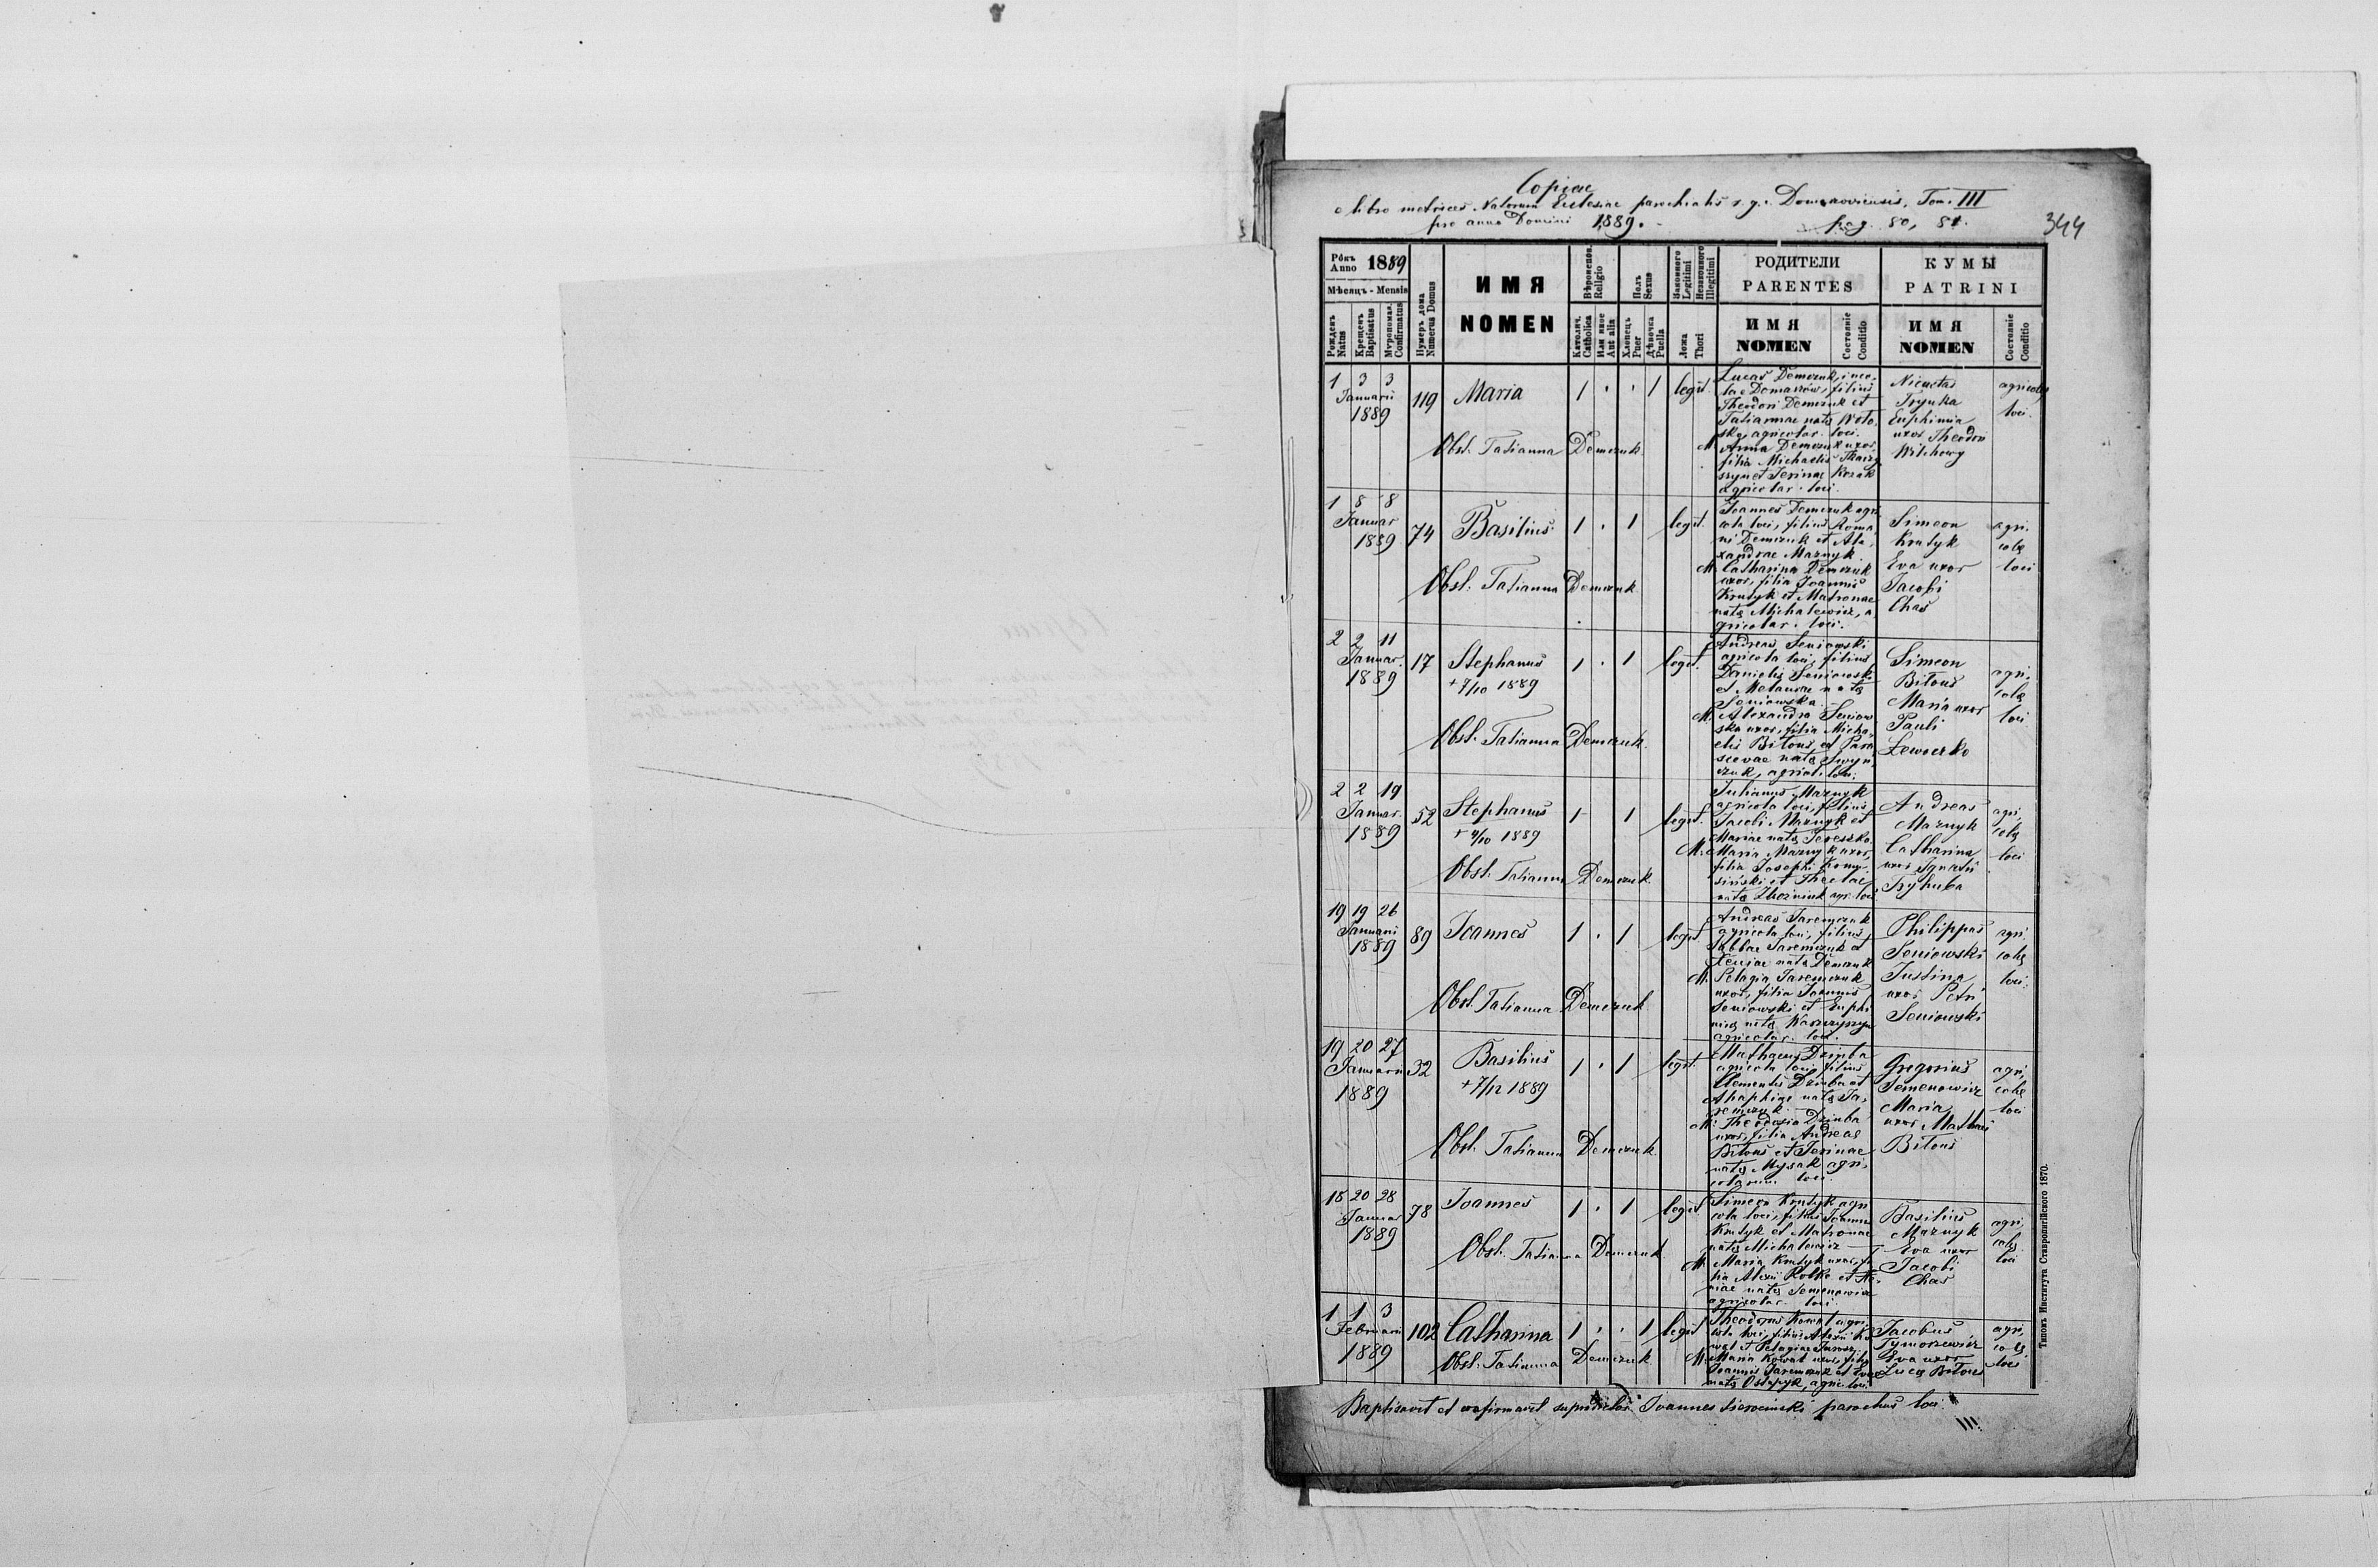 Copiae
e libro metrices Natorum Ecclesiae parochialis r. g. c. Domazoviensis, Tom. III
pro anno Domini 1889. pag. 80, 81.
344
Рôкъ Anno 1889
Мѣсяць - Mensis
Рожденъ Natus
Крещенъ Baptisatus
Мѵропомаз. Confirmatus
Нумеръ дома Numerus Domus
ИМЯ
NOMEN
Вѣроиспов. Religio
Католич. Catholica
Или иное Aut alia
Полъ Sexus
Хлопецъ Puer
Дѣвочка Puella
Законного Legitimi
Незаконного Illegitimi
Ложа Thori
РОДИТЕЛИ
PARENTES
ИМЯ
NOMEN
Состояніе Conditio
КУМЫ
PATRINI
ИМЯ
NOMEN
Состояніе Conditio
1 3 3
Januarii
1889
119
Maria
1 . . 1
legit.
Obst. Tatianna Demczuk
Lucas Demczuk, inco-
la e Domazów, filius
Theodori Demczuk et
Tatiannae natae
agricolar. loci.
M. Anna Demczuk uxor,
filia Michaelis
et Irinae Kozak
agricolar. loci.
Nicetas
Tryuka
Euphimia
uxor Theodori
Wilchowy
agricolae
loci.
1 8 8
Januar
1889
74
Basilius
1 . 1
legit.
Obst. Tatianna Demczuk
Joannes Demczuk agri-
cola loci, filius Roma-
ni Demczuk et Ale-
xandrae Maznyk.
M. Catharina Demczuk
uxor, filia Joannis
Krutyk et Matronae
natae Michalewicz, a-
gricolar. loci.
Simeon
Krutyk
Eva uxor
Jacobi
Chas
agri-
colae
loci
2 2 11
Januar.
1889
17
Stephanus
+ 7/10 1889
1 . 1
legit.
Obst. Tatianna Demczuk
Andreas Seniowski
agricola loci, filius
Danielis Seniowski
et Melaniae natae
Seniowska.
M. Alexandra Seniow-
ska uxor, filia Micha-
elis Bitous et Para-
scevae natae
agricol. loci.
Simeon
Bitous
Maria uxor
Pauli
Lewoczko
agri-
colae
loci
2 2 19
Januar.
1889
52
Stephanus
+ 9/10 1889
1 1
legit.
Obst. Tatianna Demczuk
Julianus Maznyk
agricola loci, filius
Jacobi Maznyk et
Mariae natae Tereszko
M. Maria Maznyk uxor,
filia Josephi
et Theclae
natae agr. loci
Andreas
Maznyk
Catharina
uxor Ignatii
Tryhuba
agri-
colae
loci
19 19 26
Januarii
1889
89
Joannes
1 . 1
legit
Obst. Tatianna Demczuk
Andreas Jaremczuk
agricola loci, filius
Sabbae Jaremczuk et
Xeniae natae Demczuk
M. Pelagia Jaremczuk
uxor, filia Joannis
Seniowski et Euphi-
miae natae
agricolar. loci.
Philippus
Seniowski
Justina
uxor Petri
Seniowski
agri-
colae
loci.
19 20 27
Januarii
1889
32
Basilius
+ 7/12 1889
1 . 1
legit.
Obst. Tatianna Demczuk
Mathaeus Dziuba
agricola loci, filius
Clementis Dziuba et
Ahaphiae natae Ja-
remczuk.
M. Theodosia Dziuba
uxor, filia Andreae
Bitous et Irinae
natae Mysak agri-
colarum loci.
Gregorius
Semenowicz
Maria
uxor Mathaei
Bitous
agri-
colae
loci
18 20 28
Januar
1889
78
Joannes
1 . 1
legit
Obst. Tatianna Demczuk
Simeon Krutyk agri-
cola loci, filius Joannis
Krutyk et Matronae
natae Michalewicz
M. Maria Krutyk uxor, fi-
lia Alexii et
natae Semenowicz
agricolar. loci.
Basilius
Maznyk
Eva uxor
Jacobi
Chas
agri-
colae
loci
1 1 3
Februarii
1889
102
Catharina
1 . . 1
legit
Obst. Tatianna Demczuk
Theodorus Kowal agri-
cola loci, filius Alexii Ko-
wal et Pelagiae
M. Maria Kowal uxor, filia
Joannis Jaremczuk et Evae
natae Ostapyk, agric. loci.
Jacobus
Tymoszewicz
Eva uxor
Lucae Bitous
agri-
colae
loci
Baptisavit et confirmavit supradictos Joannes parochus loci.
Типомъ Института Ставропигійского 1870.